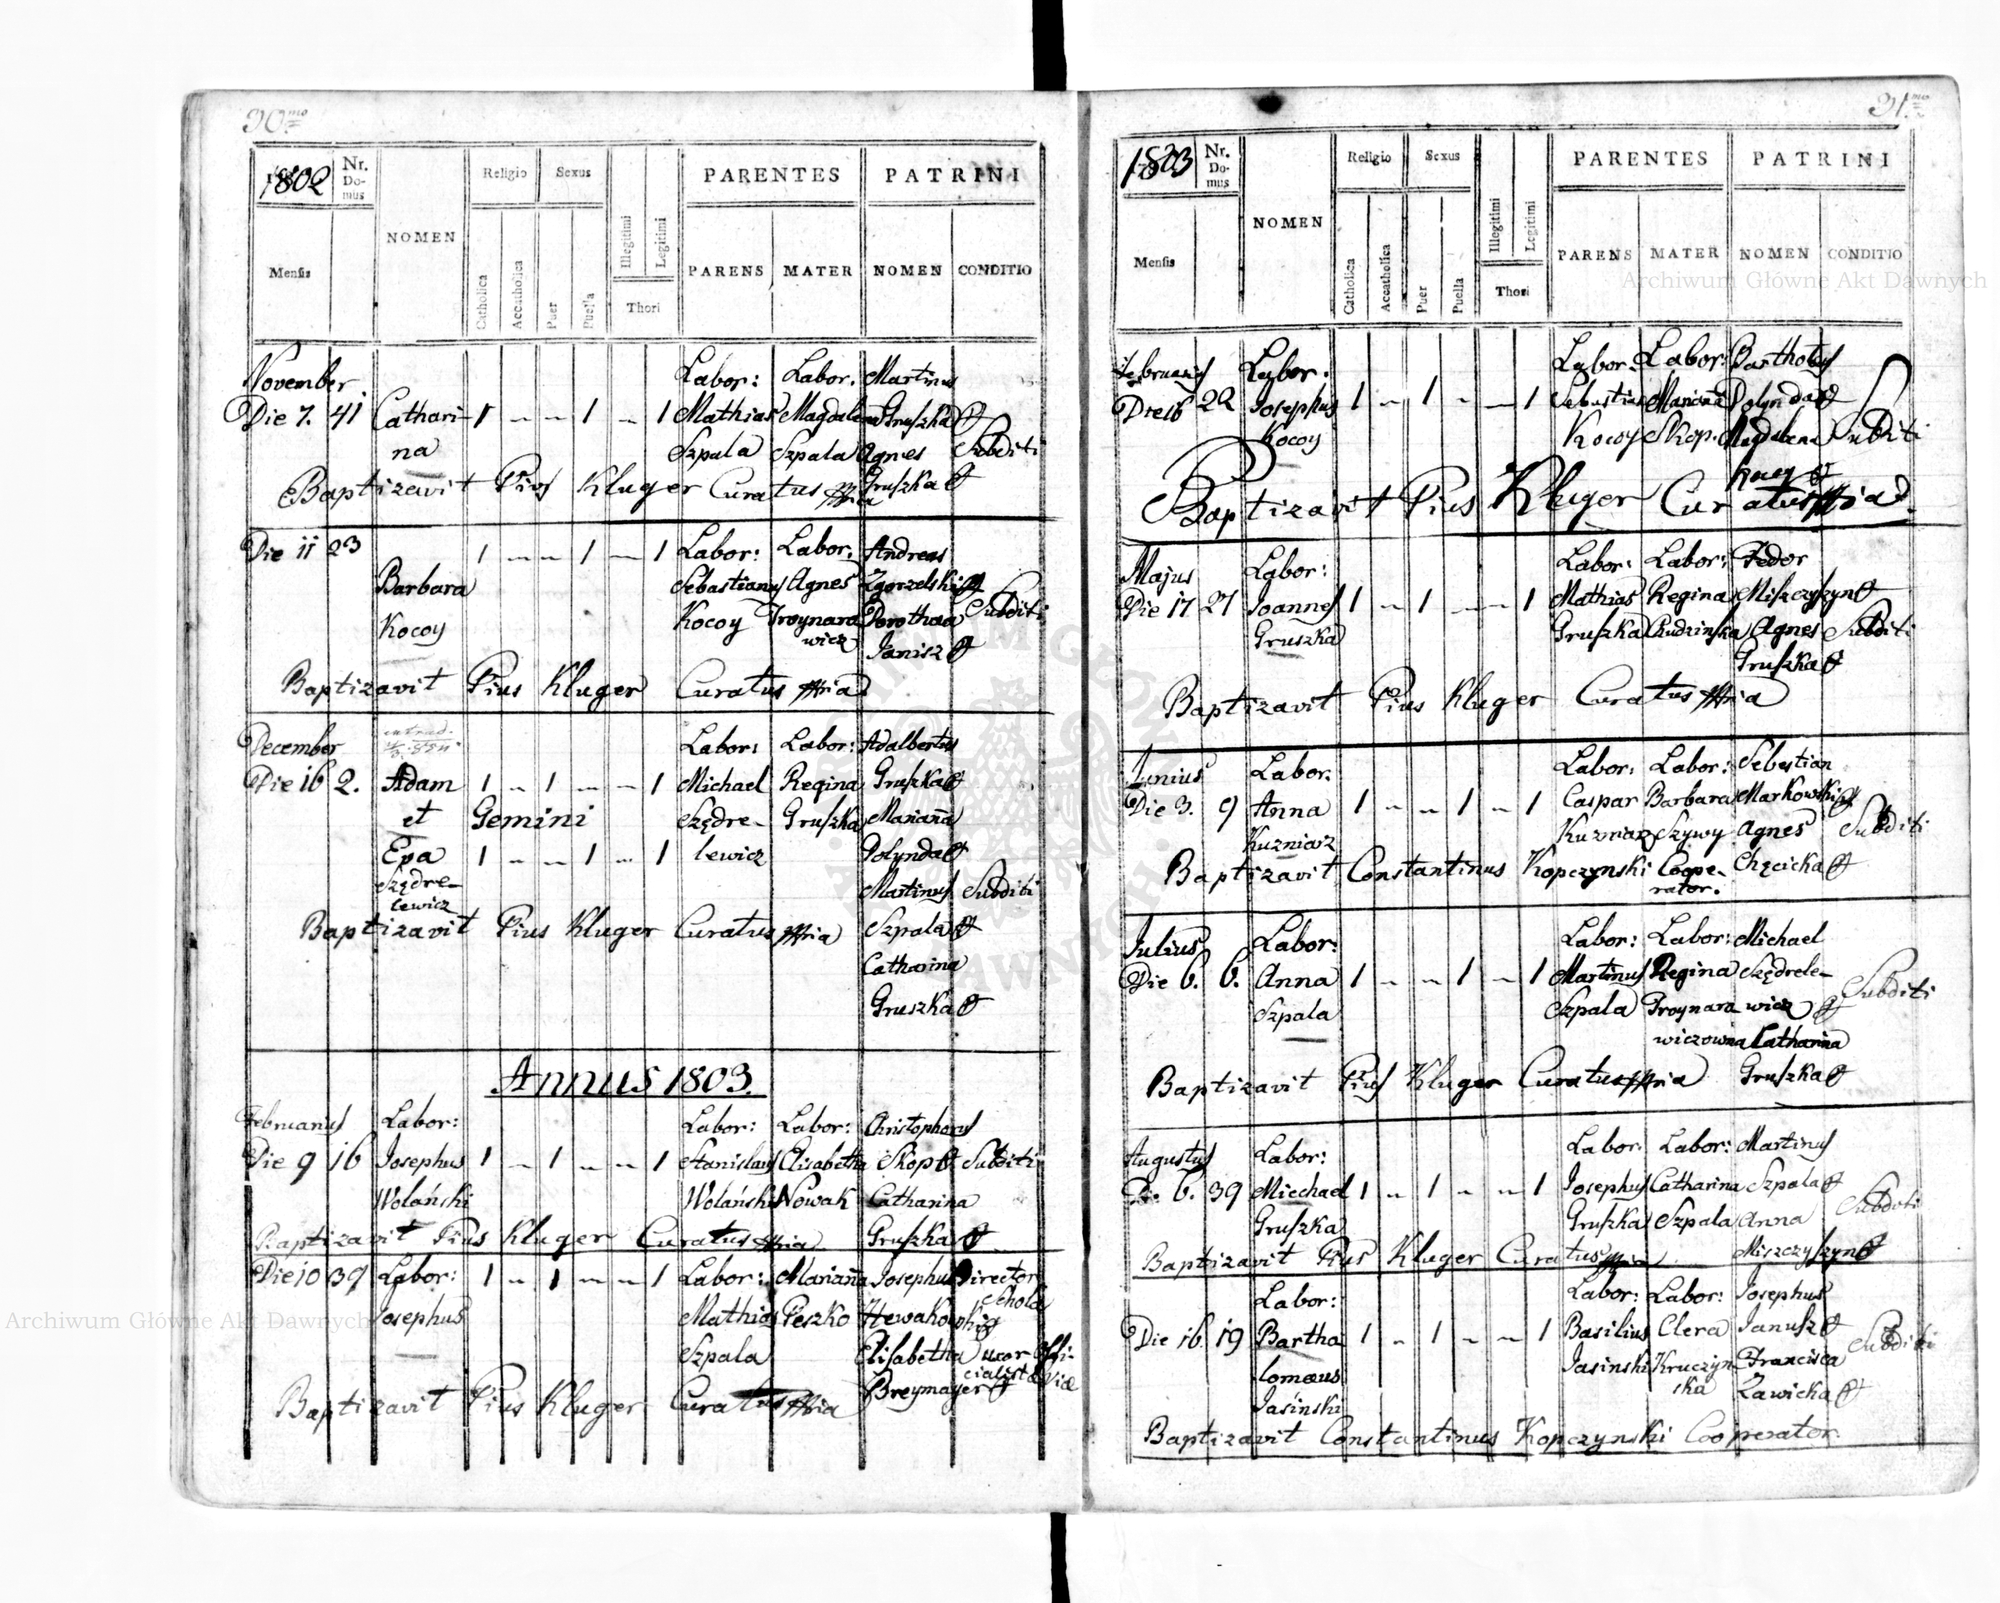 30mo
1802 Nr. Domus NOMEN Religio Sexus PARENTES PATRINI
Mensis Catholica Accatholica Puer Puella Illegitimi Legitimi Thori PARENS MATER NOMEN CONDITIO
November Labor: Labor. Martinus
Die 7. 41 Cathari- 1 - - 1 - 1 Mathias Magdalena Gruszka
na Szpala Szpala Agnes Subditi
Baptizavit Pius Kluger Curatus Gruszka
Die 11 23 1 - - 1 - 1 Labor: Labor. Andreas
Barbara Sebastianus Agnes Zgorzelski
Kocoy Kocoy Troynara Dorothea Subditi
wicz Janisz
Baptizavit Pius Kluger Curatus
December Labor: Labor: Adalbertus
Die 16 2. Adam 1 - 1 - - 1 Michael Regina Gruszka
et Gemini Szędre- Gruszka Marianna
Epa 1 - - 1 - 1 lewicz Golynda
Szędre- Martinus Subditi
lewicz
Baptizavit Pius Kluger Curatus Szpala
Catharina
Gruszka
Annus 1803.
Februarius Labor: Labor: Labor: Christophorus
Die 9 16 Josephus 1 - 1 - - 1 Stanislaus Elisabetha Skop Subditi
Wolański Wolański Nowak Catharina
Baptizavit Pius Kluger Curatus Gruszka
Die 10 39 Labor: 1 - 1 - - 1 Labor: Marianna Josephus Director
Josephus Mathias Peszko Schola
Szpala Elisabetha uxor
Baptizavit Pius Kluger Curatus Breymayer
31mo
1803 Nr. Domus NOMEN Religio Sexus PARENTES PATRINI
Mensis Catholica Accatholica Puer Puella Illegitimi Legitimi Thori PARENS MATER NOMEN CONDITIO
Februarius Labor: Labor: Labor: Bartholus
Die 16 22 Josephus 1 - 1 - - 1 Sebastian Marianna
Kocoy Kocoy Skop. Magdalena Subditi
Baptizavit Pius Kluger Curatus
Majus Labor: Labor: Labor: Fedor
Die 17 27 Joannes 1 - 1 - - 1 Mathias Regina Miszczyszyn
Gruszka Gruszka Rudzinska Agnes Subditi
Gruszka
Baptizavit Pius Kluger Curatus
Junius Labor. Labor: Labor: Sebestian
Die 3. 9 Anna 1 - - 1 - 1 Caspar Barbara Markowski
Kuzniarz Kuzniarz Szywy Agnes Subditi
Baptizavit Constantinus Kopczynski Coope- Chęcicka
rator.
Julius Labor: Labor: Labor: Michael
Die 6. 6. Anna 1 - - 1 - 1 Martinus Regina Szędrele-
Szpala Szpala Troynara wicz Subditi
wiczowna Catharina
Baptizavit Pius Kluger Curatus Gruszka
Augustus Labor: Labor: Labor: Martinus
Die 6. 39 Miechael 1 - 1 - - 1 Josephus Catharina Szpala
Gruszka Gruszka Szpala Anna Subditi
Baptizavit Pius Kluger Curatus Miszczyszyn
Labor: Labor: Labor: Josephus
Die 16. 19 Bartho 1 - 1 - - 1 Basilius Clera Janusz Subditi
lomæus Jasinski Kruczyn Francisca
Jasinski ska Zawicka
Baptizavit Constantinus Kopczynski Cooperator.
Archiwum Główne Akt Dawnych
Archiwum Główne Akt Dawnych